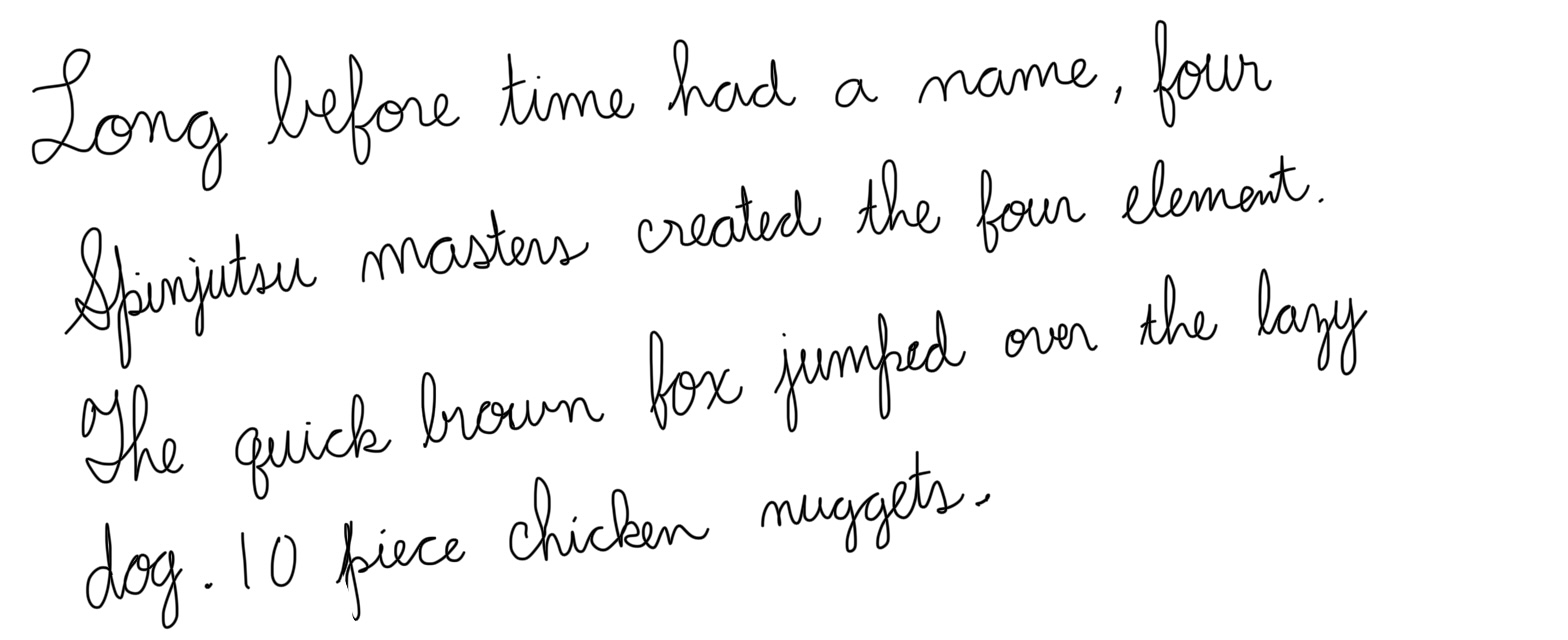 Long before time had a name, four
Spinjutsu masters created the four element.
The quick brown fox jumped over the lazy
dog. 10 piece chicken nuggets.